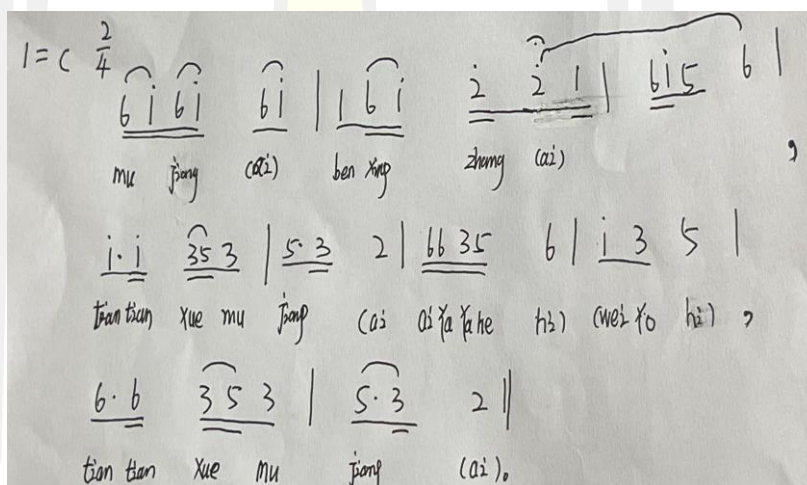 1=C 2/4
6 i 6i 6i | 1 6 i 2̇ 2̇ 1 | 6i5 6 |
mu jiang (ai) ben xing zhang (ai) ,
i· i 35 3 | 5· 3 2 | 66 35 6 | i 3 5 |
tian tian xue mu jiang (ai ai ya ya he hi) (wei yo hi) ,
6· 6 3 5 3 | 5· 3 2 ‖
tian tian xue mu jiang (ai)。